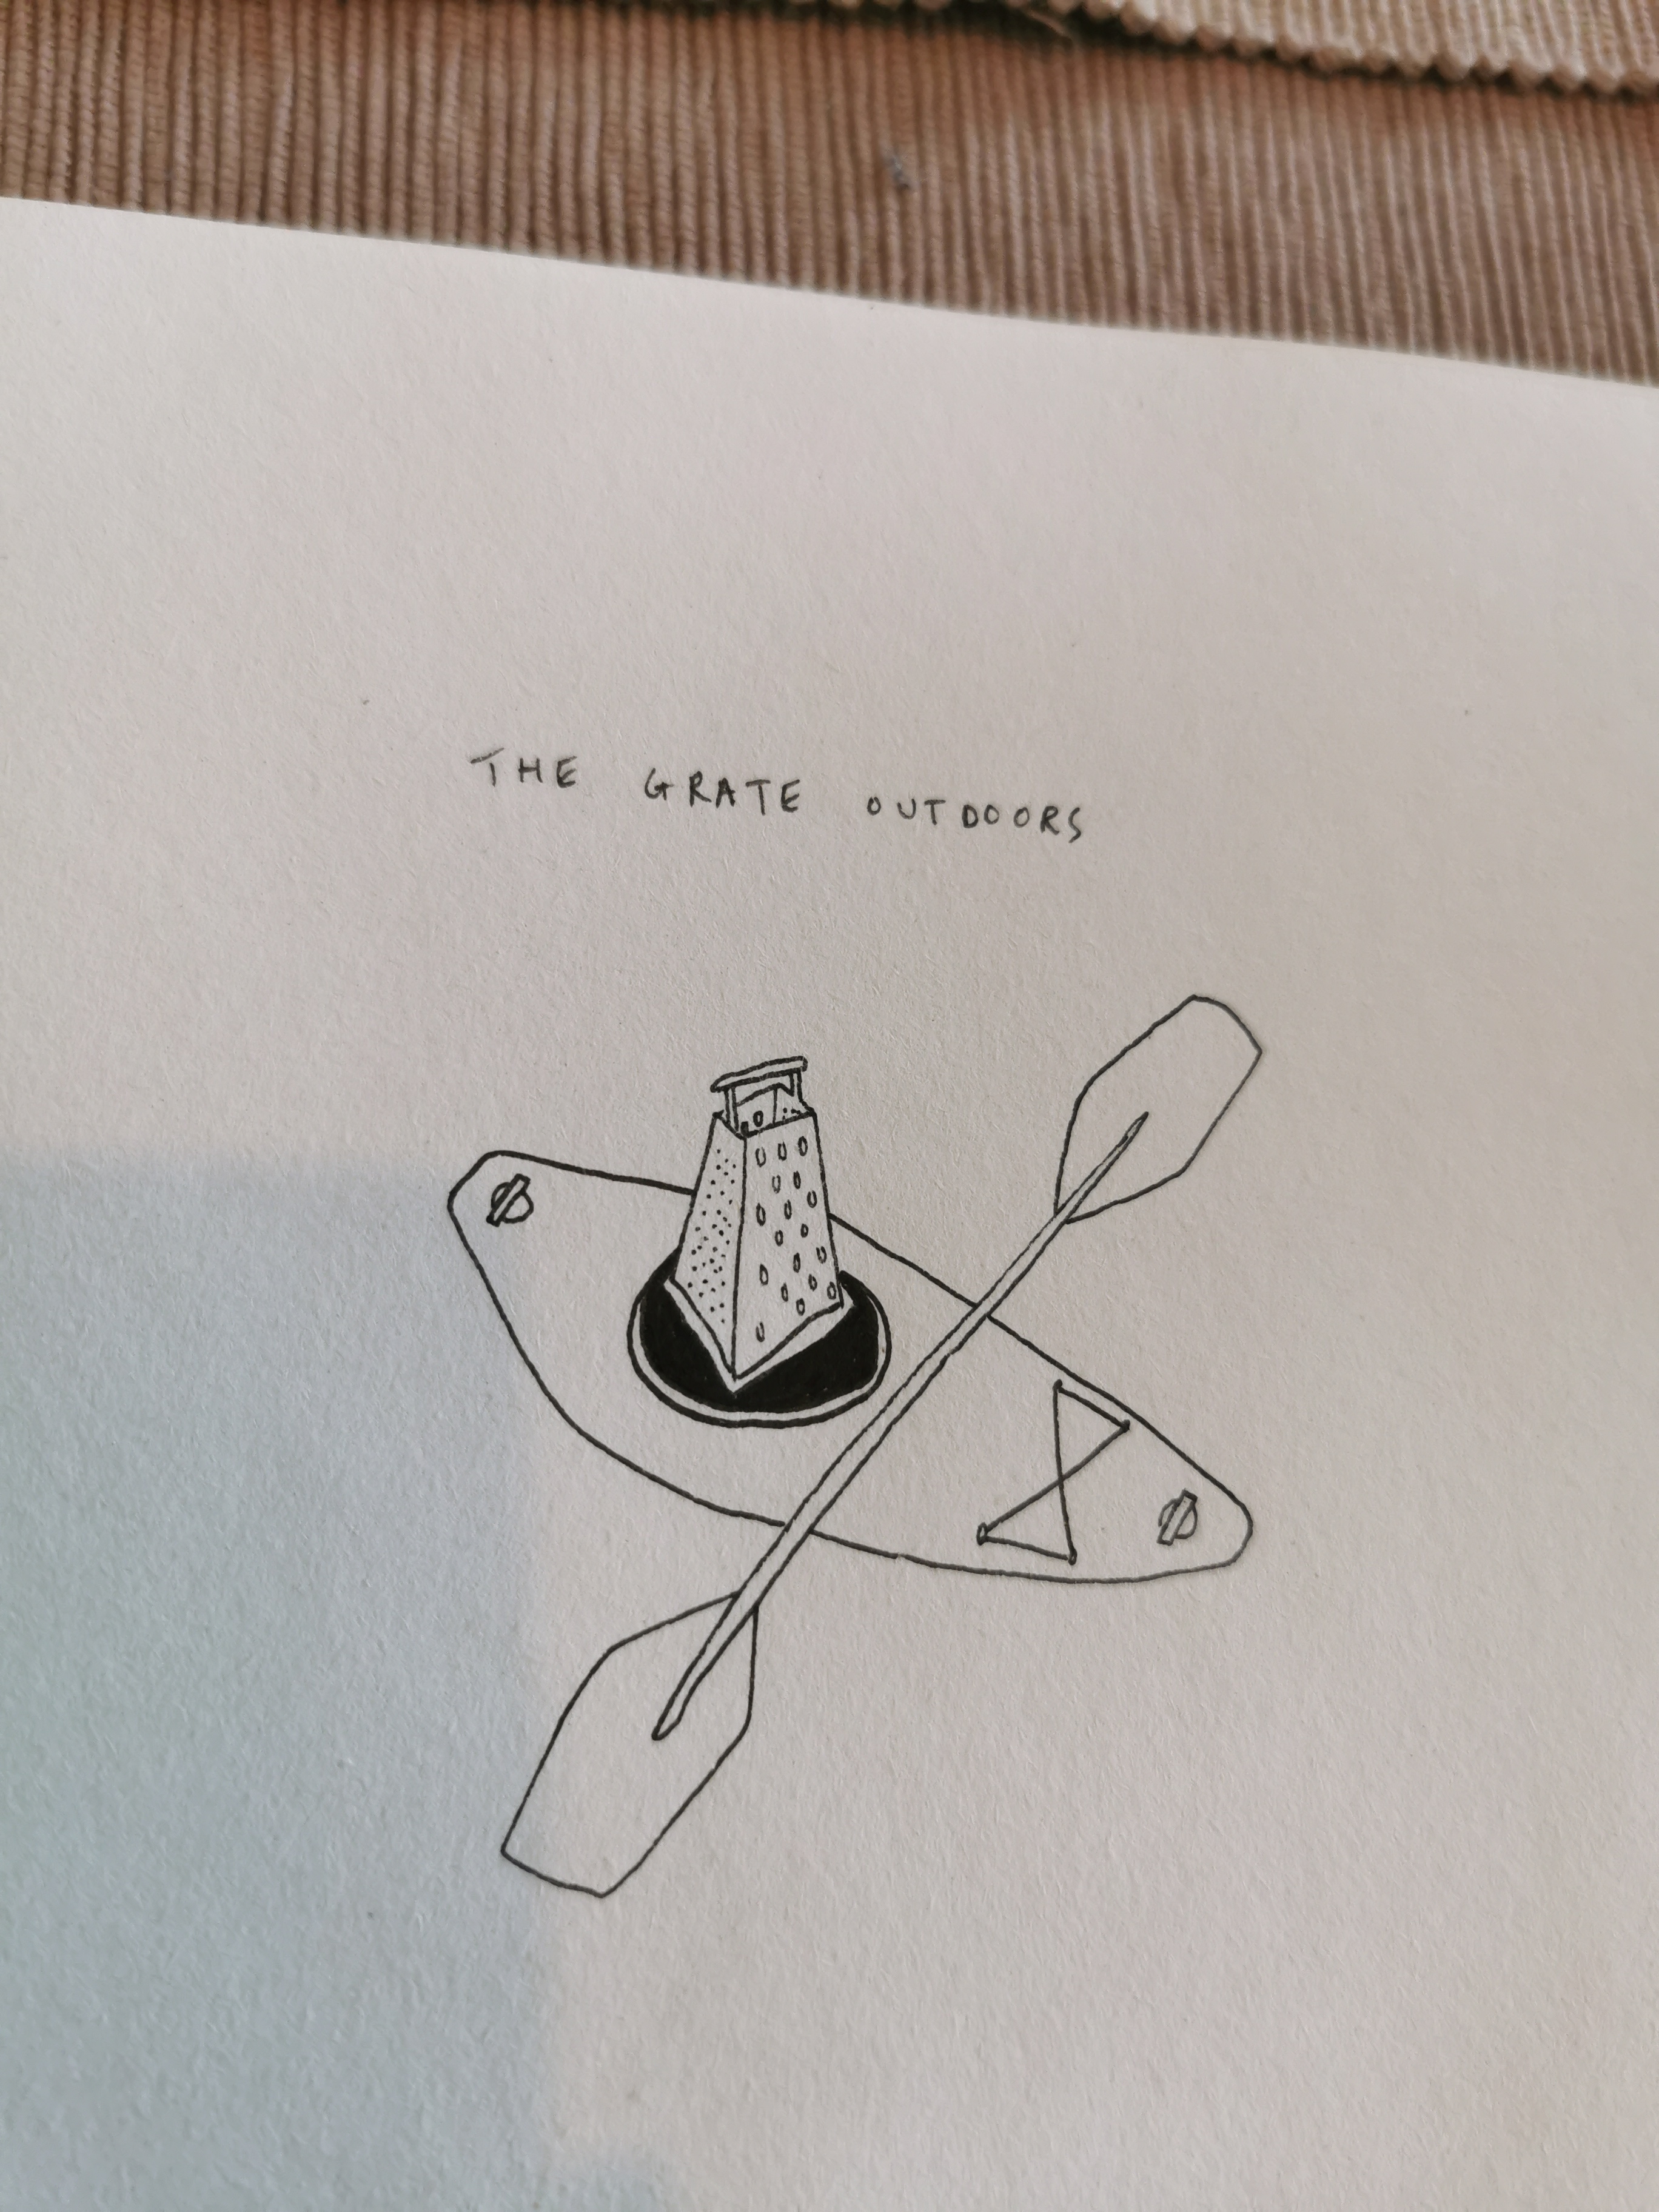 THE GRATE OUTDOORS